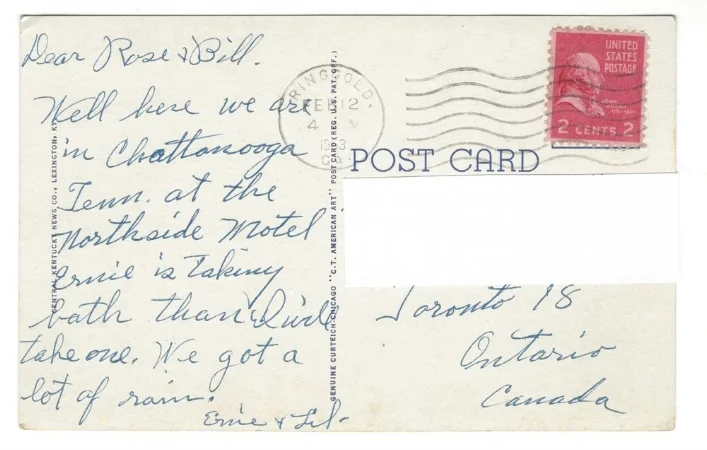 Dear Rose & Bill.
Well here we are
in Chattanooga
Tenn. at the
Northside Motel
Ernie is taking
bath than I will
take one. We got a
lot of rain.
Ernie & Lil-
CENTRAL KENTUCKY NEWS CO., LEXINGTON, KY.
GENUINE CURTEICH-CHICAGO "C.T. AMERICAN ART" POST CARD (REG. U.S. PAT. OFF.)
RINGGOLD,
FEB 12
4
GA.
UNITED
STATES
POSTAGE
JOHN
ADAMS
2 CENTS 2
POST CARD
Toronto 18
Ontario
Canada